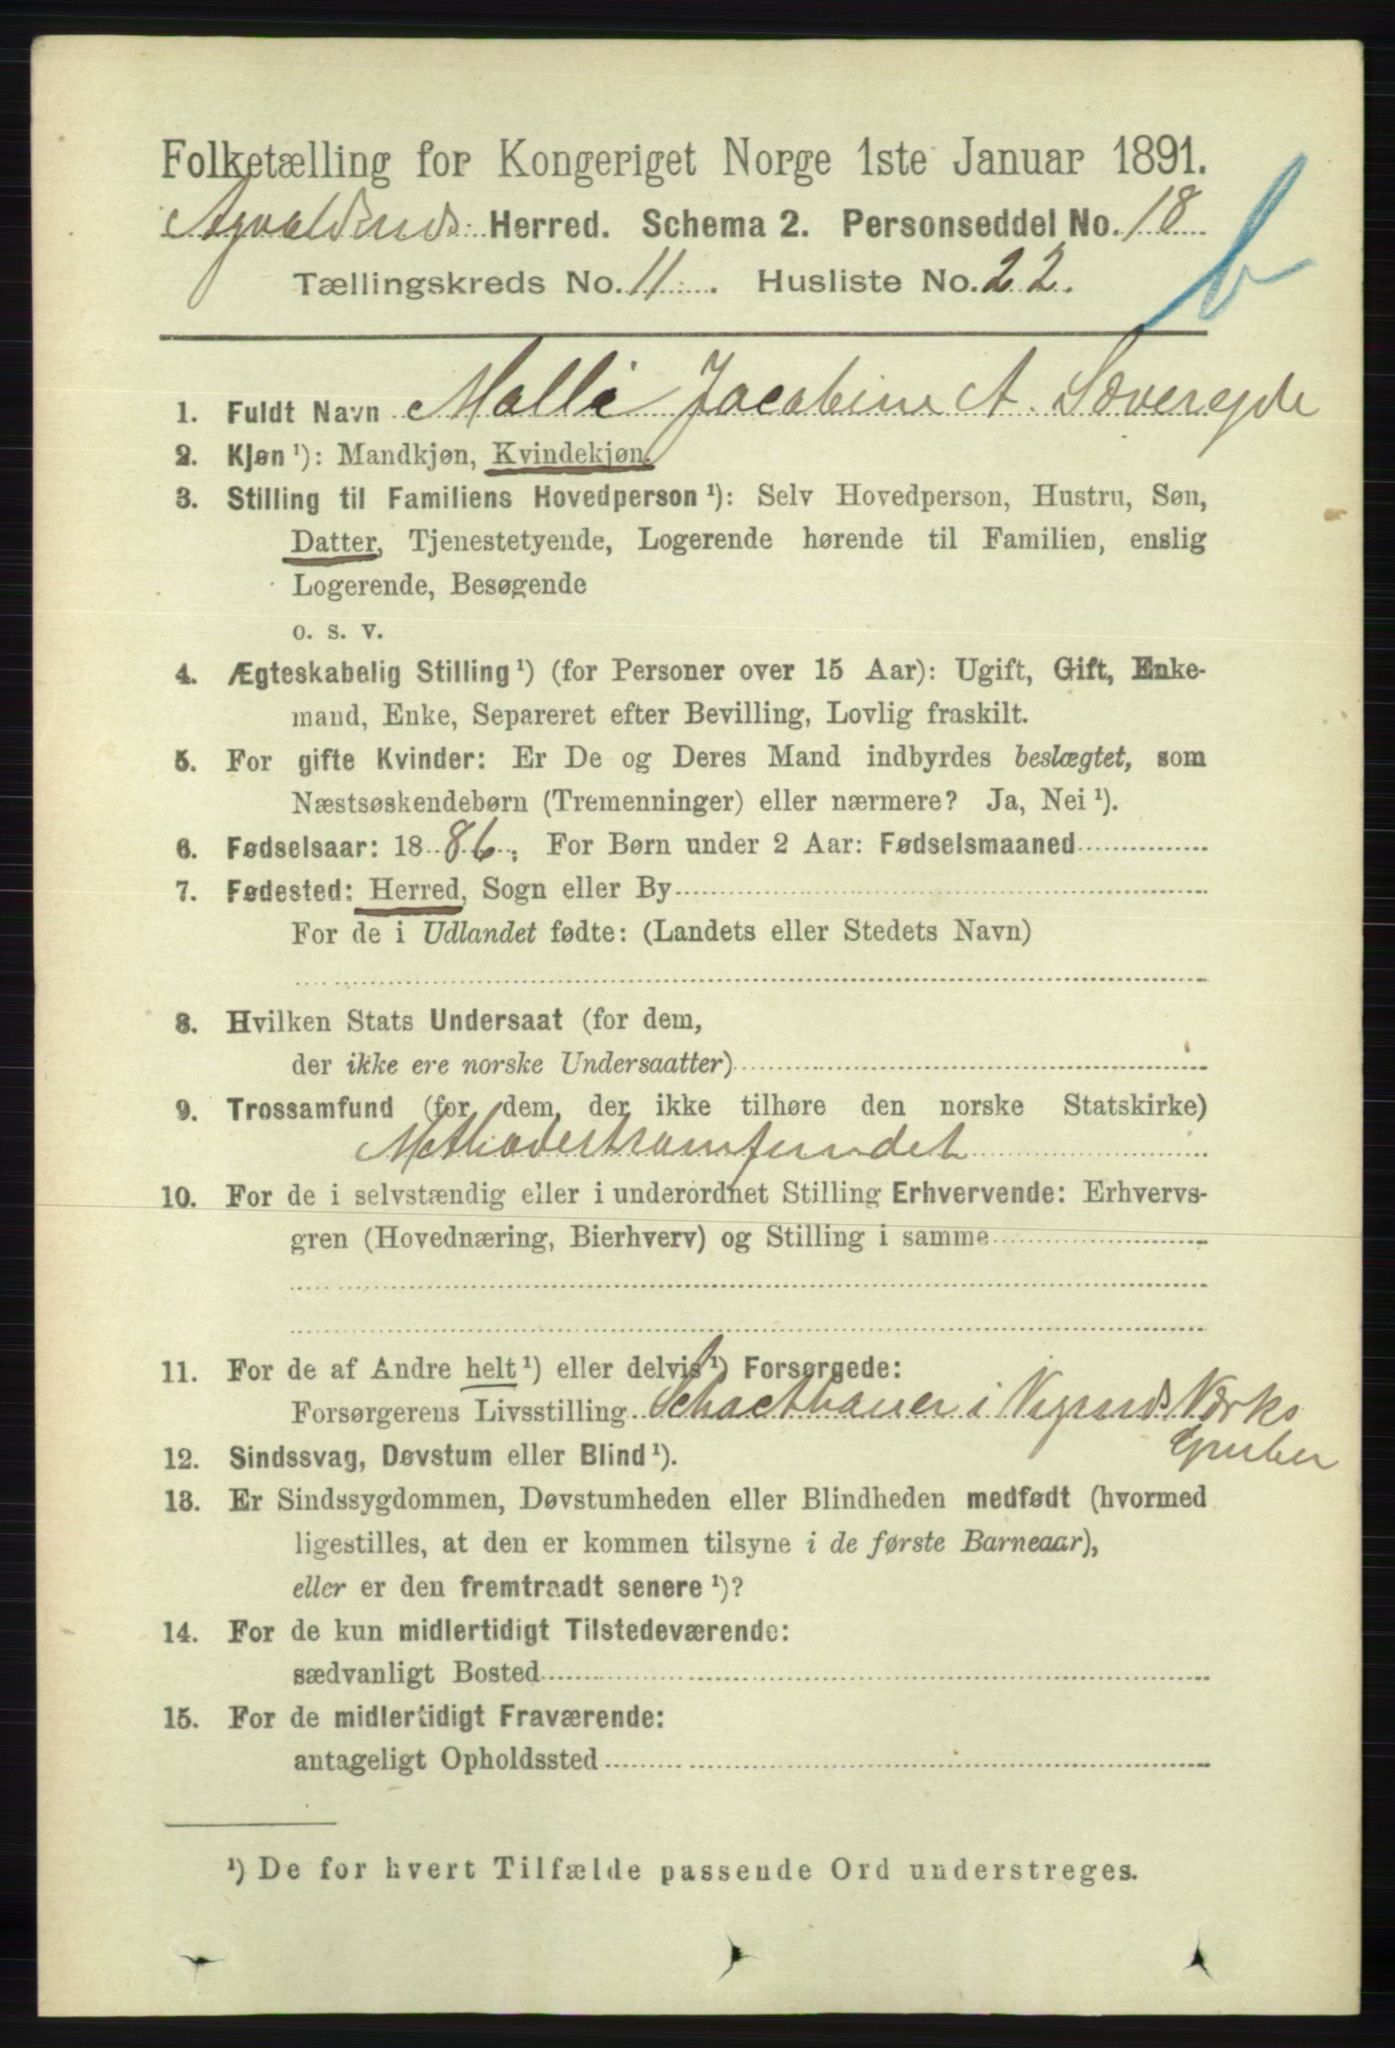 Folketælling for Kongeriget Norge 1ste Januar 1891.
Herred. Schema 2. Personseddel No. 18
Tællingskreds No. 11. Husliste No. 22.
1. Fuldt Navn Malli Jacobine A. Sæveregde
2. Kjøn ¹): Mandkjøn, Kvindekjøn.
3. Stilling til Familiens Hovedperson ¹): Selv Hovedperson, Hustru, Søn,
Datter, Tjenestetyende, Logerende hørende til Familien, enslig
Logerende, Besøgende
o. s. v.
4. Ægteskabelig Stilling ¹) (for Personer over 15 Aar): Ugift, Gift, Enke-
mand, Enke, Separeret efter Bevilling, Lovlig fraskilt.
5. For gifte Kvinder: Er De og Deres Mand indbyrdes beslægtet, som
Næstsøskendebørn (Tremenninger) eller nærmere? Ja, Nei ¹).
6. Fødselsaar: 1886. For Børn under 2 Aar: Fødselsmaaned
7. Fødested: Herred, Sogn eller By
For de i Udlandet fødte: (Landets eller Stedets Navn)
8. Hvilken Stats Undersaat (for dem,
der ikke ere norske Undersaatter)
9. Trossamfund (for dem, der ikke tilhøre den norske Statskirke)
Methodestsamfundet
10. For de i selvstændig eller i underordnet Stilling Erhvervende: Erhvervs-
gren (Hovednæring, Bierhverv) og Stilling i samme
11. For de af Andre helt ¹) eller delvis ¹) Forsørgede:
Forsørgerens Livsstilling Schacthauer i Vigsnes Værks
Gruber
12. Sindssvag, Døvstum eller Blind ¹).
13. Er Sindssygdommen, Døvstumheden eller Blindheden medfødt (hvormed
ligestilles, at den er kommen tilsyne i de første Barneaar),
eller er den fremtraadt senere ¹)?
14. For de kun midlertidigt Tilstedeværende:
sædvanligt Bosted
15. For de midlertidigt Fraværende:
antageligt Opholdssted
¹) De for hvert Tilfælde passende Ord understreges.